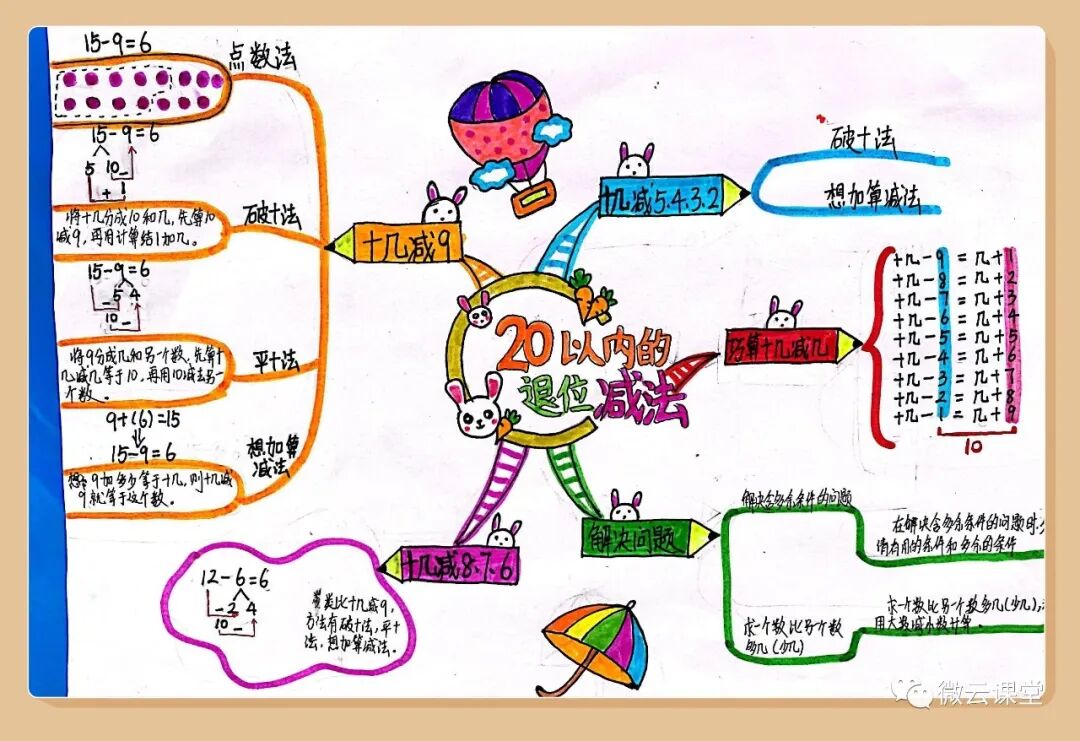 20以内的
退位减法
十几减9
点数法
15-9=6
破十法
15-9=6
5 10
+ 1
将十几分成10和几,先算10
减9,再用计算结1加几。
平十法
15-9=6
-5 4
10-
将9分成几和另一个数,先算十
几减几等于10,再用10减去另一
个数。
想加算
减法
9+(6)=15
15-9=6
想:9加多少等于十几,则十几减
9就等于这个数。
十几减8.7.6
12-6=6
-2 4
10-
类比十几减9,
方法有破十法,平十
法,想加算减法。
十几减5.4.3.2
破十法
想加算减法
巧算十几减几
十几-9=几+1
十几-8=几+2
十几-7=几+3
十几-6=几+4
十几-5=几+5
十几-4=几+6
十几-3=几+7
十几-2=几+8
十几-1=几+9
10
解决问题
解决含多余条件的问题
在解决含多余条件的问题时,
清有用的条件和多余的条件
求一个数比另一个数
多几(少几)
求一个数比另一个数多几(少几),
用大数减小数计算。
微云课堂